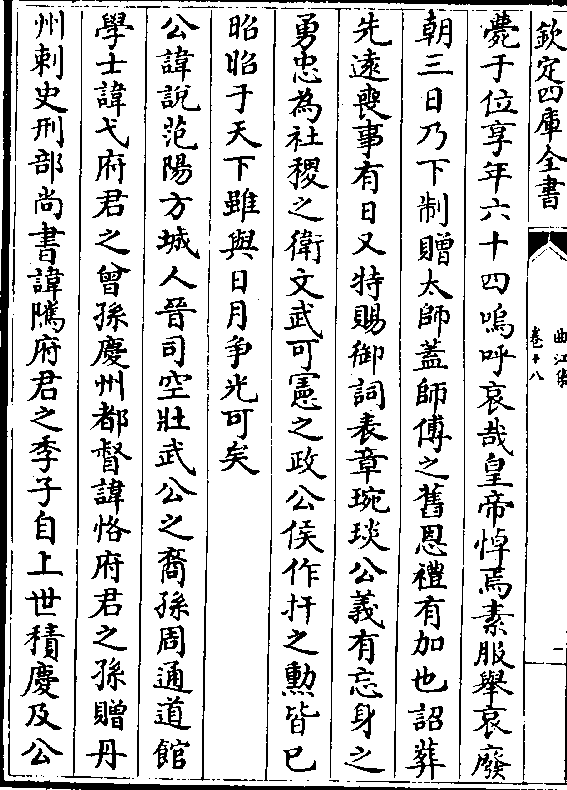 欽定四庫全書
曲江集
卷十八
薨于位享年六十四嗚呼哀哉皇帝悼焉素服舉哀廢
朝三日乃下制贈太師蓋師傅之舊恩禮有加也詔葬
先遠喪事有日又特賜御詞表章琬琰公義有忘身之
勇忠為社稷之衛文武可憲之政公侯作扞之勳皆已
昭昭于天下雖與日月争光可矣
公諱說范陽方城人晉司空壯武公之裔孫周通道館
學士諱弋府君之曾孫慶州都督諱恪府君之孫贈丹
州刺史刑部尚書諱隲府君之季子自上世積慶及公